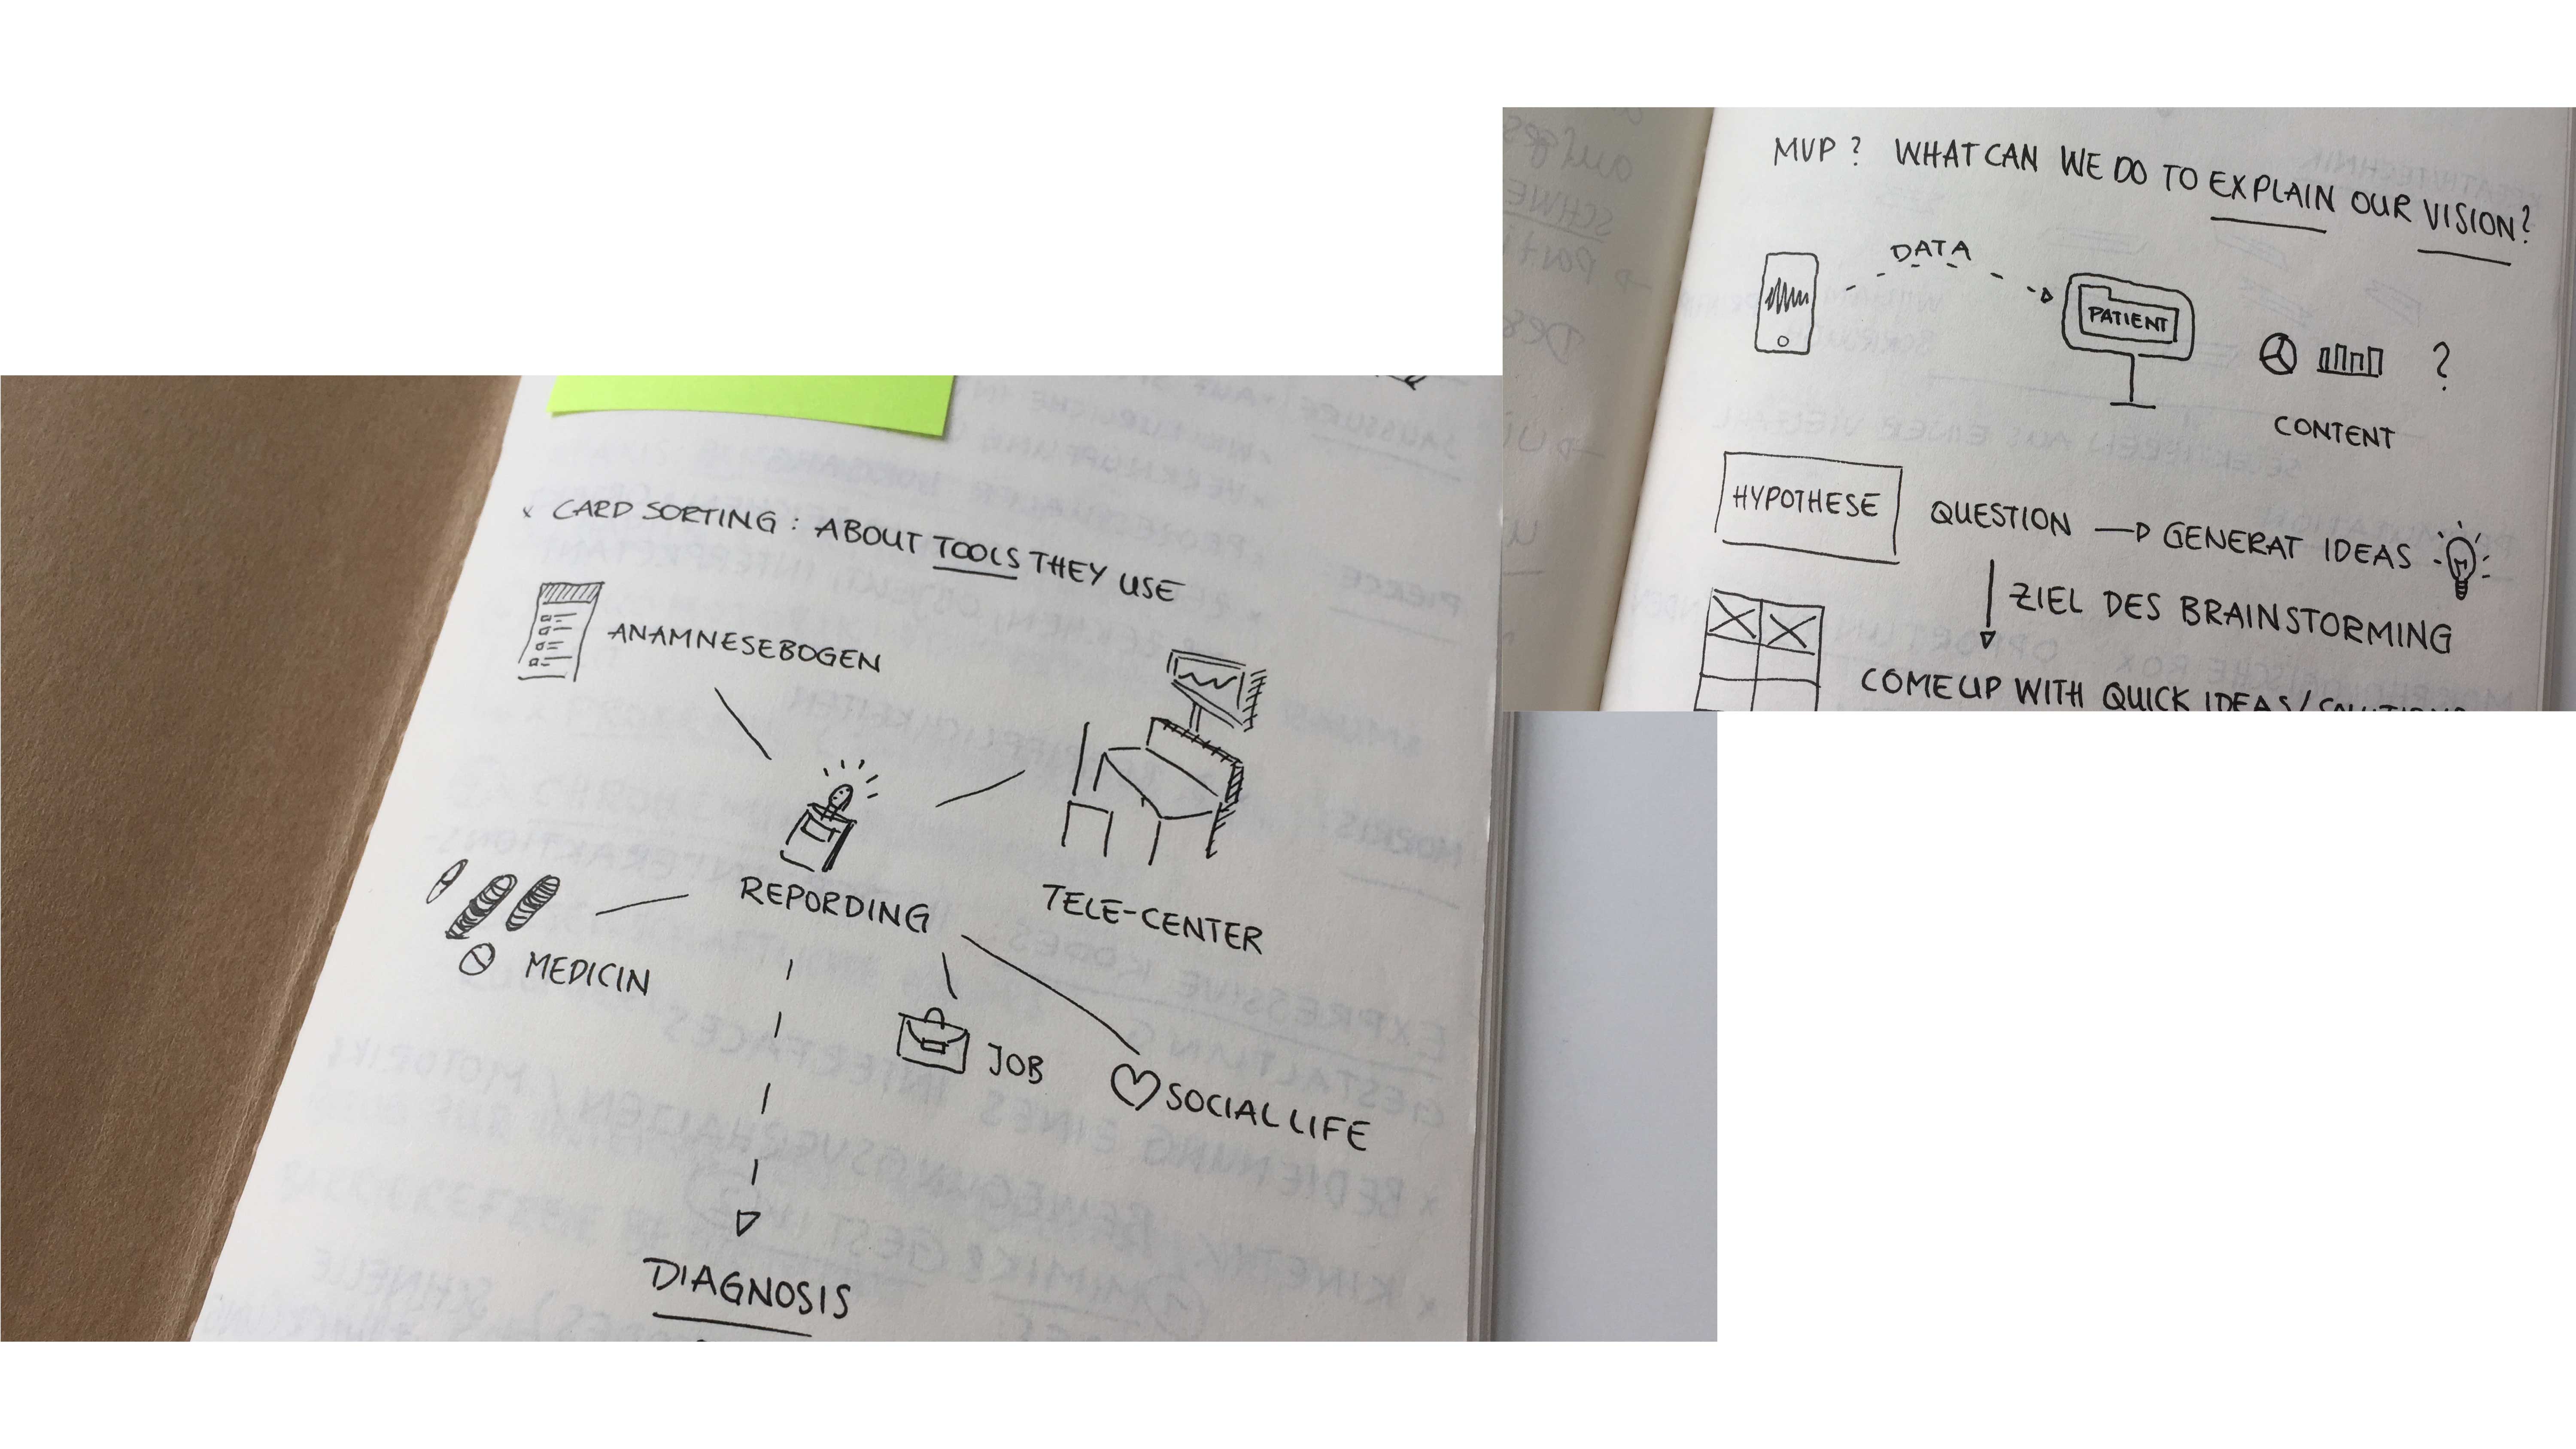 x CARD SORTING : ABOUT TOOLS THEY USE
ANAMNESEBOGEN
REPORDING
TELE-CENTER
MEDICIN
JOB
SOCIAL LIFE
DIAGNOSIS
MVP ? WHAT CAN WE DO TO EXPLAIN OUR VISION?
DATA
PATIENT
?
CONTENT
HYPOTHESE
QUESTION → GENERAT IDEAS
ZIEL DES BRAINSTORMING
COME UP WITH QUICK IDEAS/